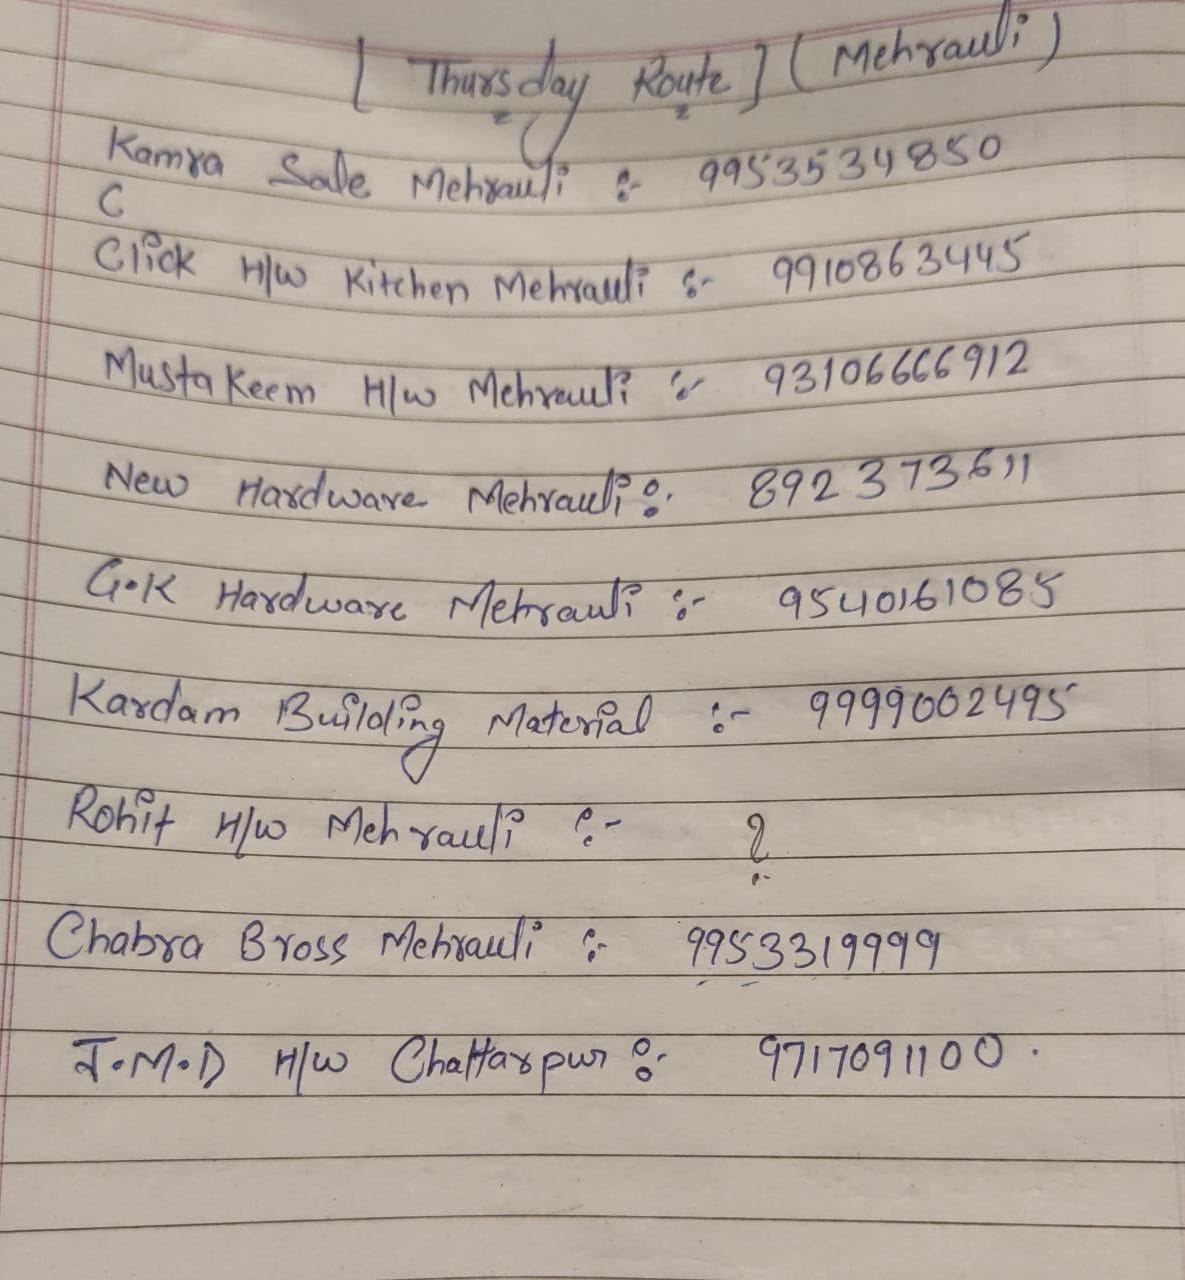 [ Thursday Route ] ( Mehrauli )
Kamra Sale Mehrauli :- 9953534850
C
Click H/w Kitchen Mehrauli :- 9910863445
Mustakeem H/w Mehrauli :- 93106666912
New Hardware Mehrauli :- 892373611
G.K Hardware Mehrauli :- 9540161085
Kardam Building Material :- 9999002495
Rohit H/w Mehrauli :- ?
Chabra Bross Mehrauli :- 9953319999
J.M.D H/w Chattarpur :- 9717091100.